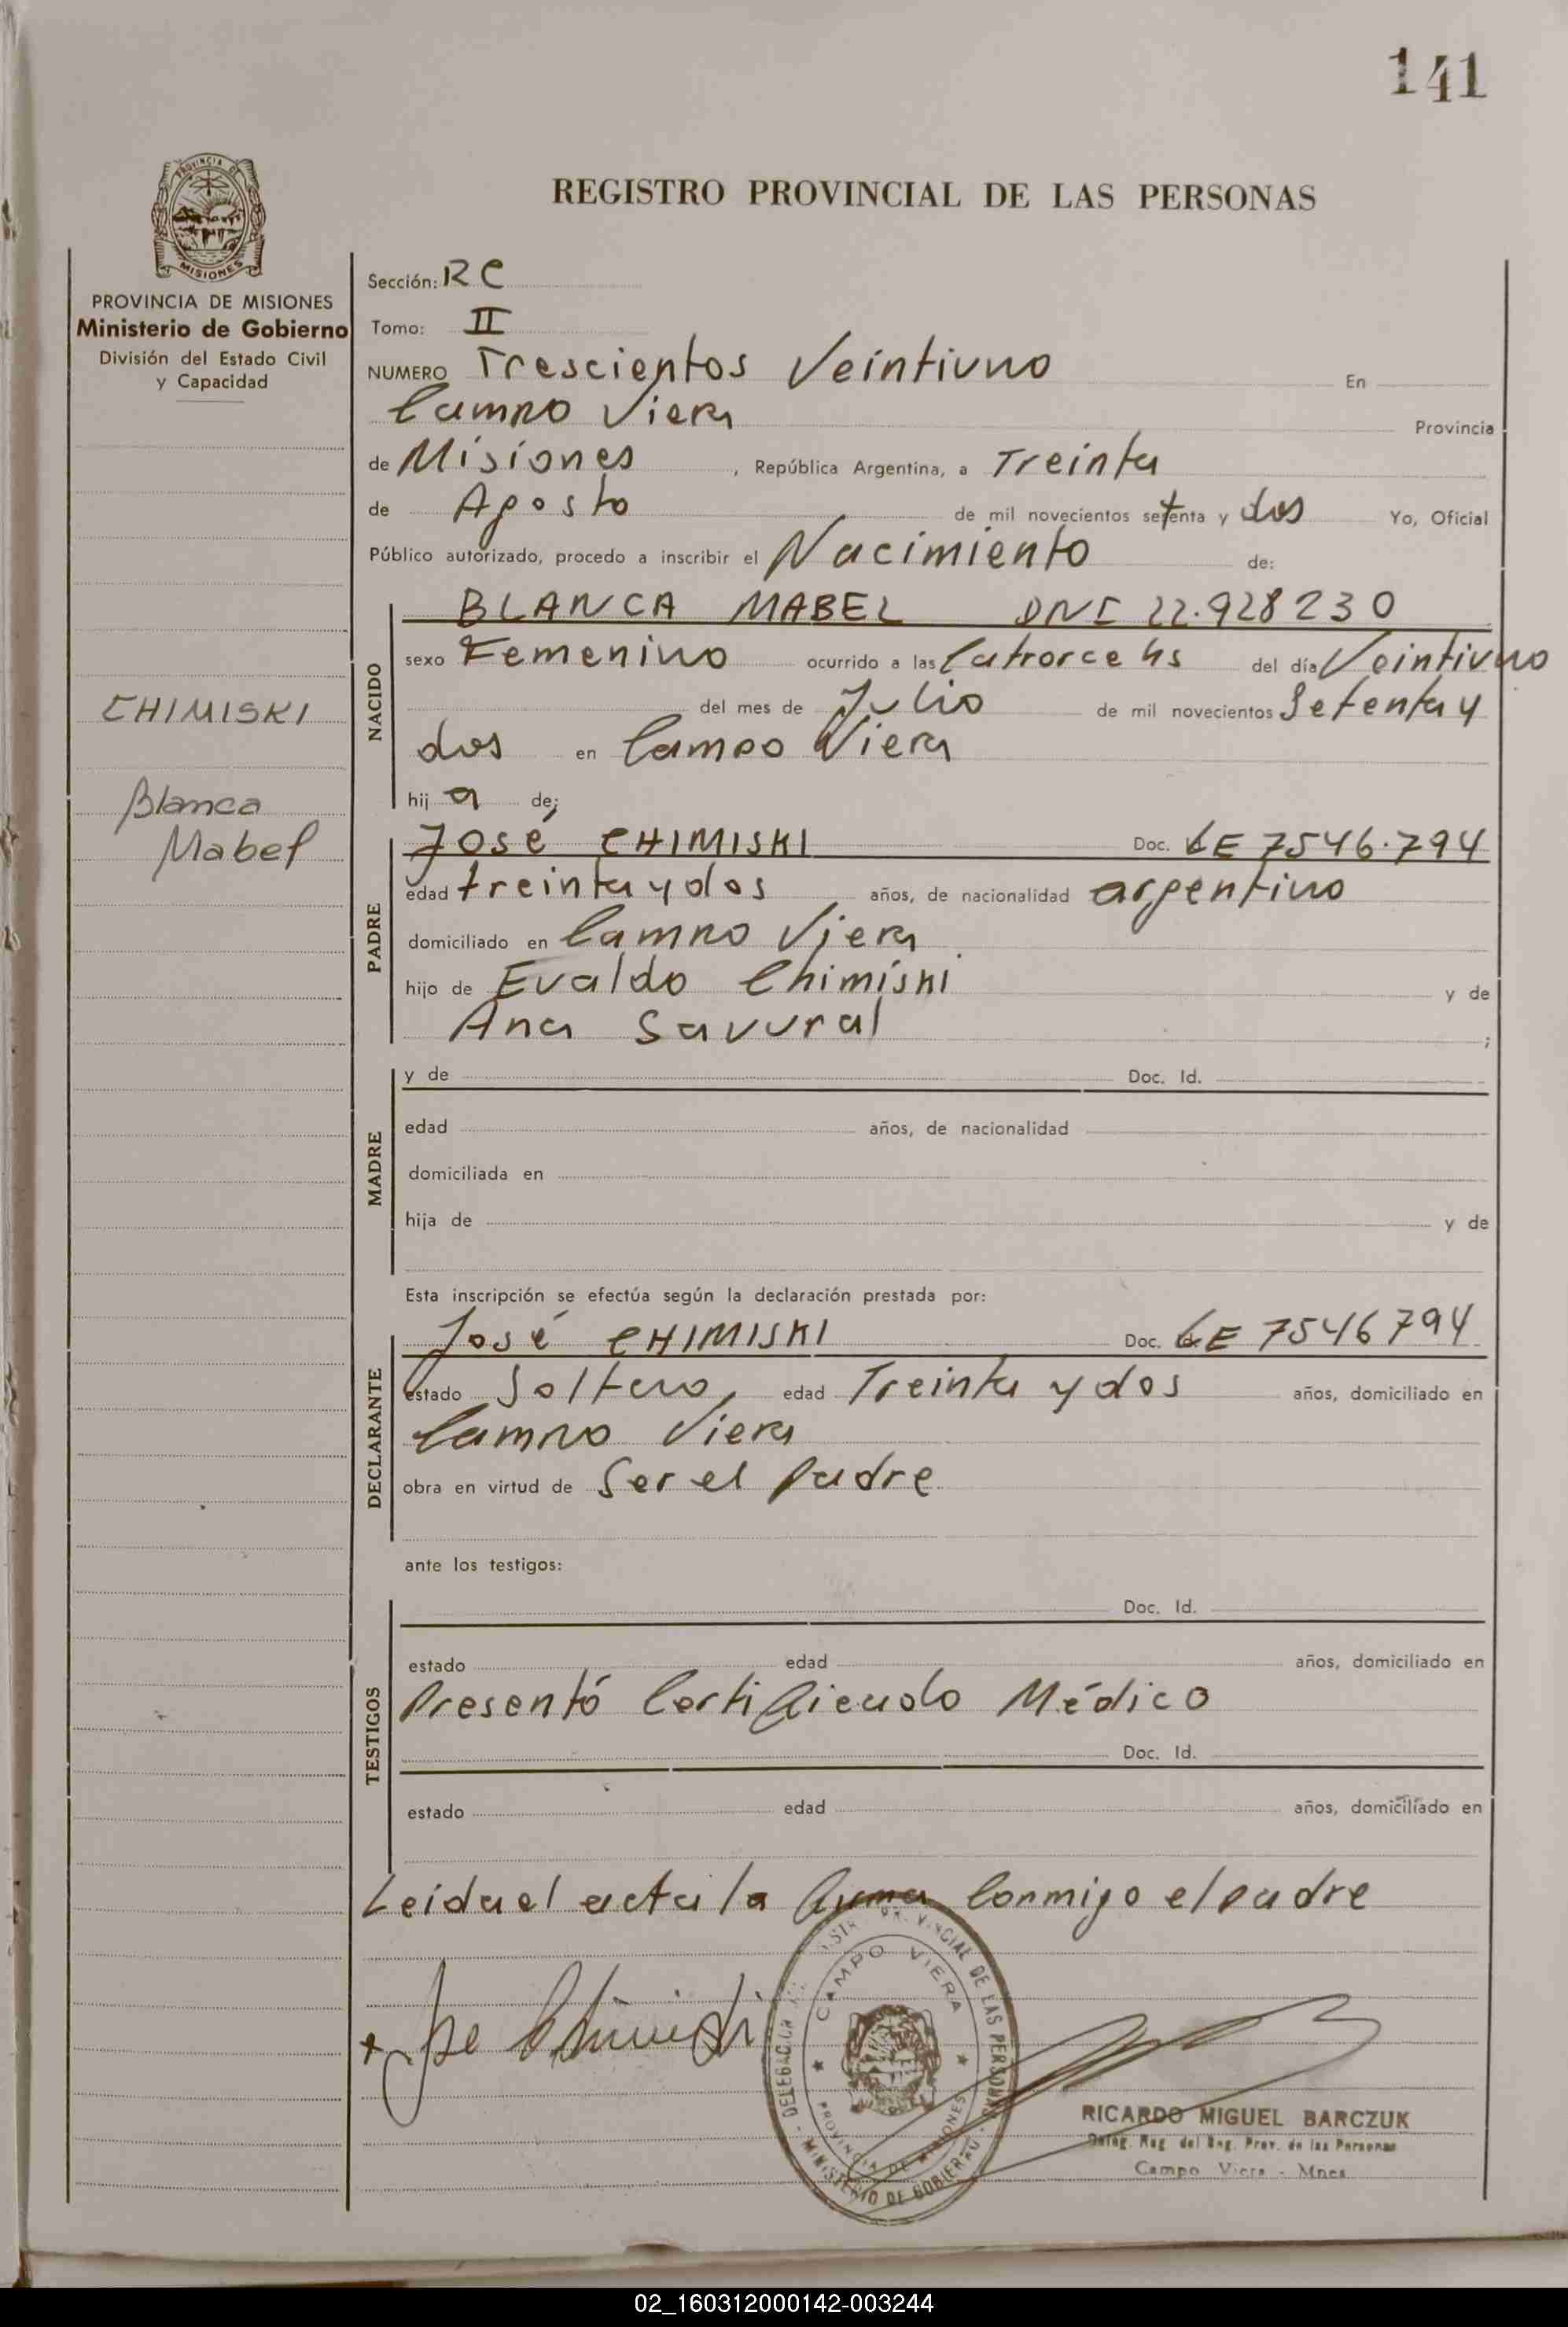 141
PROVINCIA DE
MISIONES
PROVINCIA DE MISIONES
Ministerio de Gobierno
División del Estado Civil
y Capacidad
CHIMISKI
Blanca
Mabel
REGISTRO PROVINCIAL DE LAS PERSONAS
Sección: RC
Tomo: II
NUMERO Trescientos Veintiuno En
Campo Viera Provincia
de Misiones, República Argentina, a Treinta
de Agosto de mil novecientos setenta y dos Yo, Oficial
Público autorizado, procedo a inscribir el Nacimiento de:
NACIDO
BLANCA MABEL DNI 22.928230
sexo Femenino ocurrido a las Catrorce hs del día Veintiuno
del mes de Julio de mil novecientos Setenta y
dos en Campo Viera
hij a de;
PADRE
José CHIMISKI Doc. LE 7546.794
edad treinta y dos años, de nacionalidad argentino
domiciliado en Campo Viera
hijo de Evaldo Chimiski y de
Ana Savural ;
MADRE
y de Doc. Id.
edad años, de nacionalidad
domiciliada en
hija de y de
Esta inscripción se efectúa según la declaración prestada por:
DECLARANTE
José CHIMISKI Doc. LE 7546794
estado Soltero, edad Treinta y dos años, domiciliado en
Campo Viera
obra en virtud de Ser el padre
ante los testigos:
TESTIGOS
Doc. Id.
estado edad años, domiciliado en
Presentó Certificado Médico
Doc. Id.
estado edad años, domiciliado en
Leida el acta la firma Conmigo el padre
Jose Chimiski
CAMPO VIERA
PROVINCIA DE MISIONES
MINISTERIO DE GOBIERNO
RICARDO MIGUEL BARCZUK
Prov. de las Personas
Campo Viera - Mnes
02_160312000142-003244